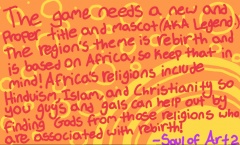 The game needs a new and
Proper title and mascot(AKA Legend).
The region's theme is rebirth and
is based on Africa, so keep that in
mind! Africa's religions include
Hinduism, Islam, and Christianity so
you guys and gals can help out by
finding Gods from those religions who
are associated with rebirth!
-Soul of Art2